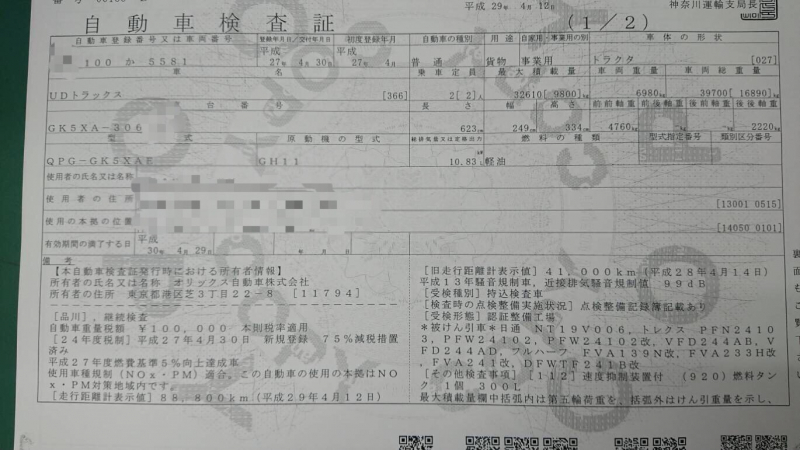 平成 29年 4月 12日
神奈川運輸支局長
自動車検査証
(1/2)
自動車登録番号又は車両番号 登録年月日/交付年月日 初度登録年月 自動車の種別 用途 自家用・事業用の別 車体の形状
100 か 5581 平成 27年 4月 30日 平成 27年 4月 普通 貨物 事業用 トラクタ [027]
車名 乗車定員 最大積載量 車両重量 車両総重量
UDトラックス [366] 2[ 2]人 32610[ 9800]kg 6980kg 39700[ 16890]kg
台番号 長さ 幅 高さ 前前軸重 前後軸重 後前軸重 後後軸重
GK5XA-306 623cm 249cm 334cm 4760kg -kg -kg 2220kg
型式 原動機の型式 総排気量又は定格出力 燃料の種類 型式指定番号 類別区分番号
QPG-GK5XAE GH11 10.83L 軽油
使用者の氏名又は名称
使用者の住所 [13001 0515]
使用の本拠の位置 [14050 0101]
有効期間の満了する日 平成 30年 4月 29日 年 月 日
備考
【本自動車検査証発行時における所有者情報】
所有者の氏名又は名称 オリックス自動車株式会社
所有者の住所 東京都港区芝3丁目22-8 [11794]
[品川], 継続検査
自動車重量税 ¥100,000 本則税率適用
[24年度税制] 平成27年4月30日 新規登録 75%減税措置
済み
平成27年度燃費基準5%向上達成車
使用車種規制(NOx・PM)適合, この自動車の使用の本拠はNO
x・PM対策地域内です。
[走行距離計表示値] 88,800km (平成29年4月12日)
[旧走行距離計表示値] 41,000km (平成28年4月14日)
平成13年騒音規制車, 近接排気騒音規制値 99dB
[受検種別] 持込検査車
[検査時の点検整備実施状況] 点検整備記録簿記載あり
[受検形態] 認証整備工場
*被けん引車*日通 NT19V006, トレクス PFN2410
3, PFW24102, PFW24102改, VFD244AB, V
FD244AD, フルハーフ FVA139N改, FVA233H改
FVA241改, DFWTF241B改
[その他検査事項] [112] 速度抑制装置付 (920) 燃料タン
ク, 1個 300L
最大積載量欄中括弧内は第五輪荷重を, 括弧外はけん引重量を示し,